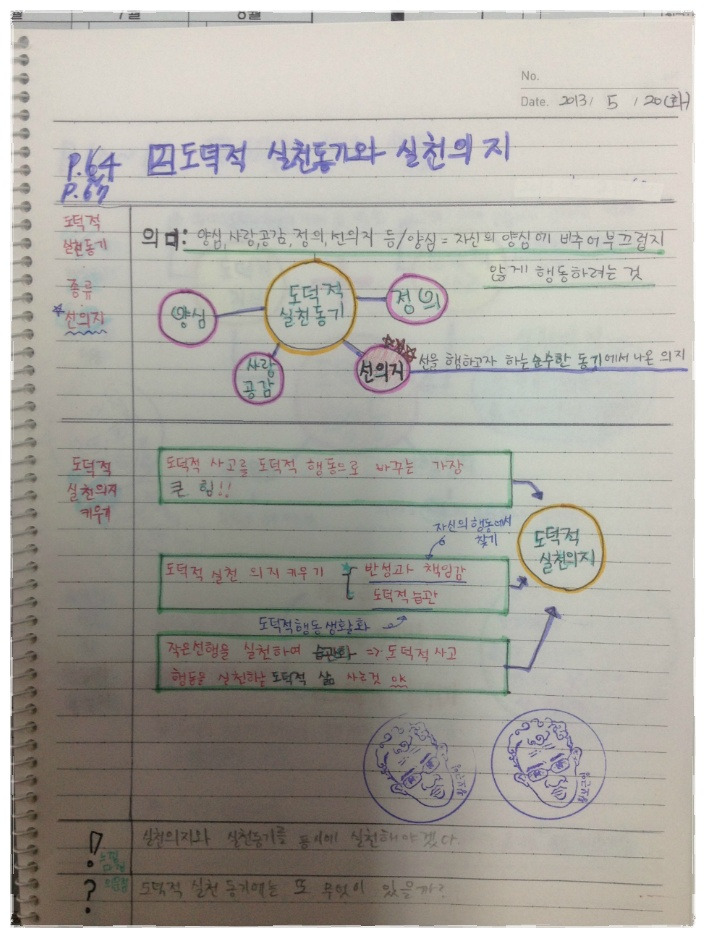 7월 8월
No.
Date. 2013 / 5 / 20 (화)
P.64 2 도덕적 실천동기와 실천의지
P.67
도덕적
실천동기
종류
☆선의지
의미: 양심,사랑,공감,정의,선의지 등/양심 = 자신의 양심에 비추어 부끄럽지
않게 행동하려는 것
도덕적
실천동기
양심
정의
사랑
공감
선의지
선을 행하고자 하는 순수한 동기에서 나온 의지
도덕적
실천의지
키우기
도덕적 사고를 도덕적 행동으로 바꾸는 가장
큰 힘!!
자신의 행동에서
찾기
도덕적
실천의지
도덕적 실천 의지 키우기 반성과 책임감
도덕적 습관
도덕적행동 생활화
작은선행을 실천하여 습관화 => 도덕적 사고
행동을 실천하는 도덕적 삶 사는것
! 느낌
실천의지와 실천동기를 실천해야겠다.
? 의문점
도덕적 실천 동기에는 또 무엇이 있을까?